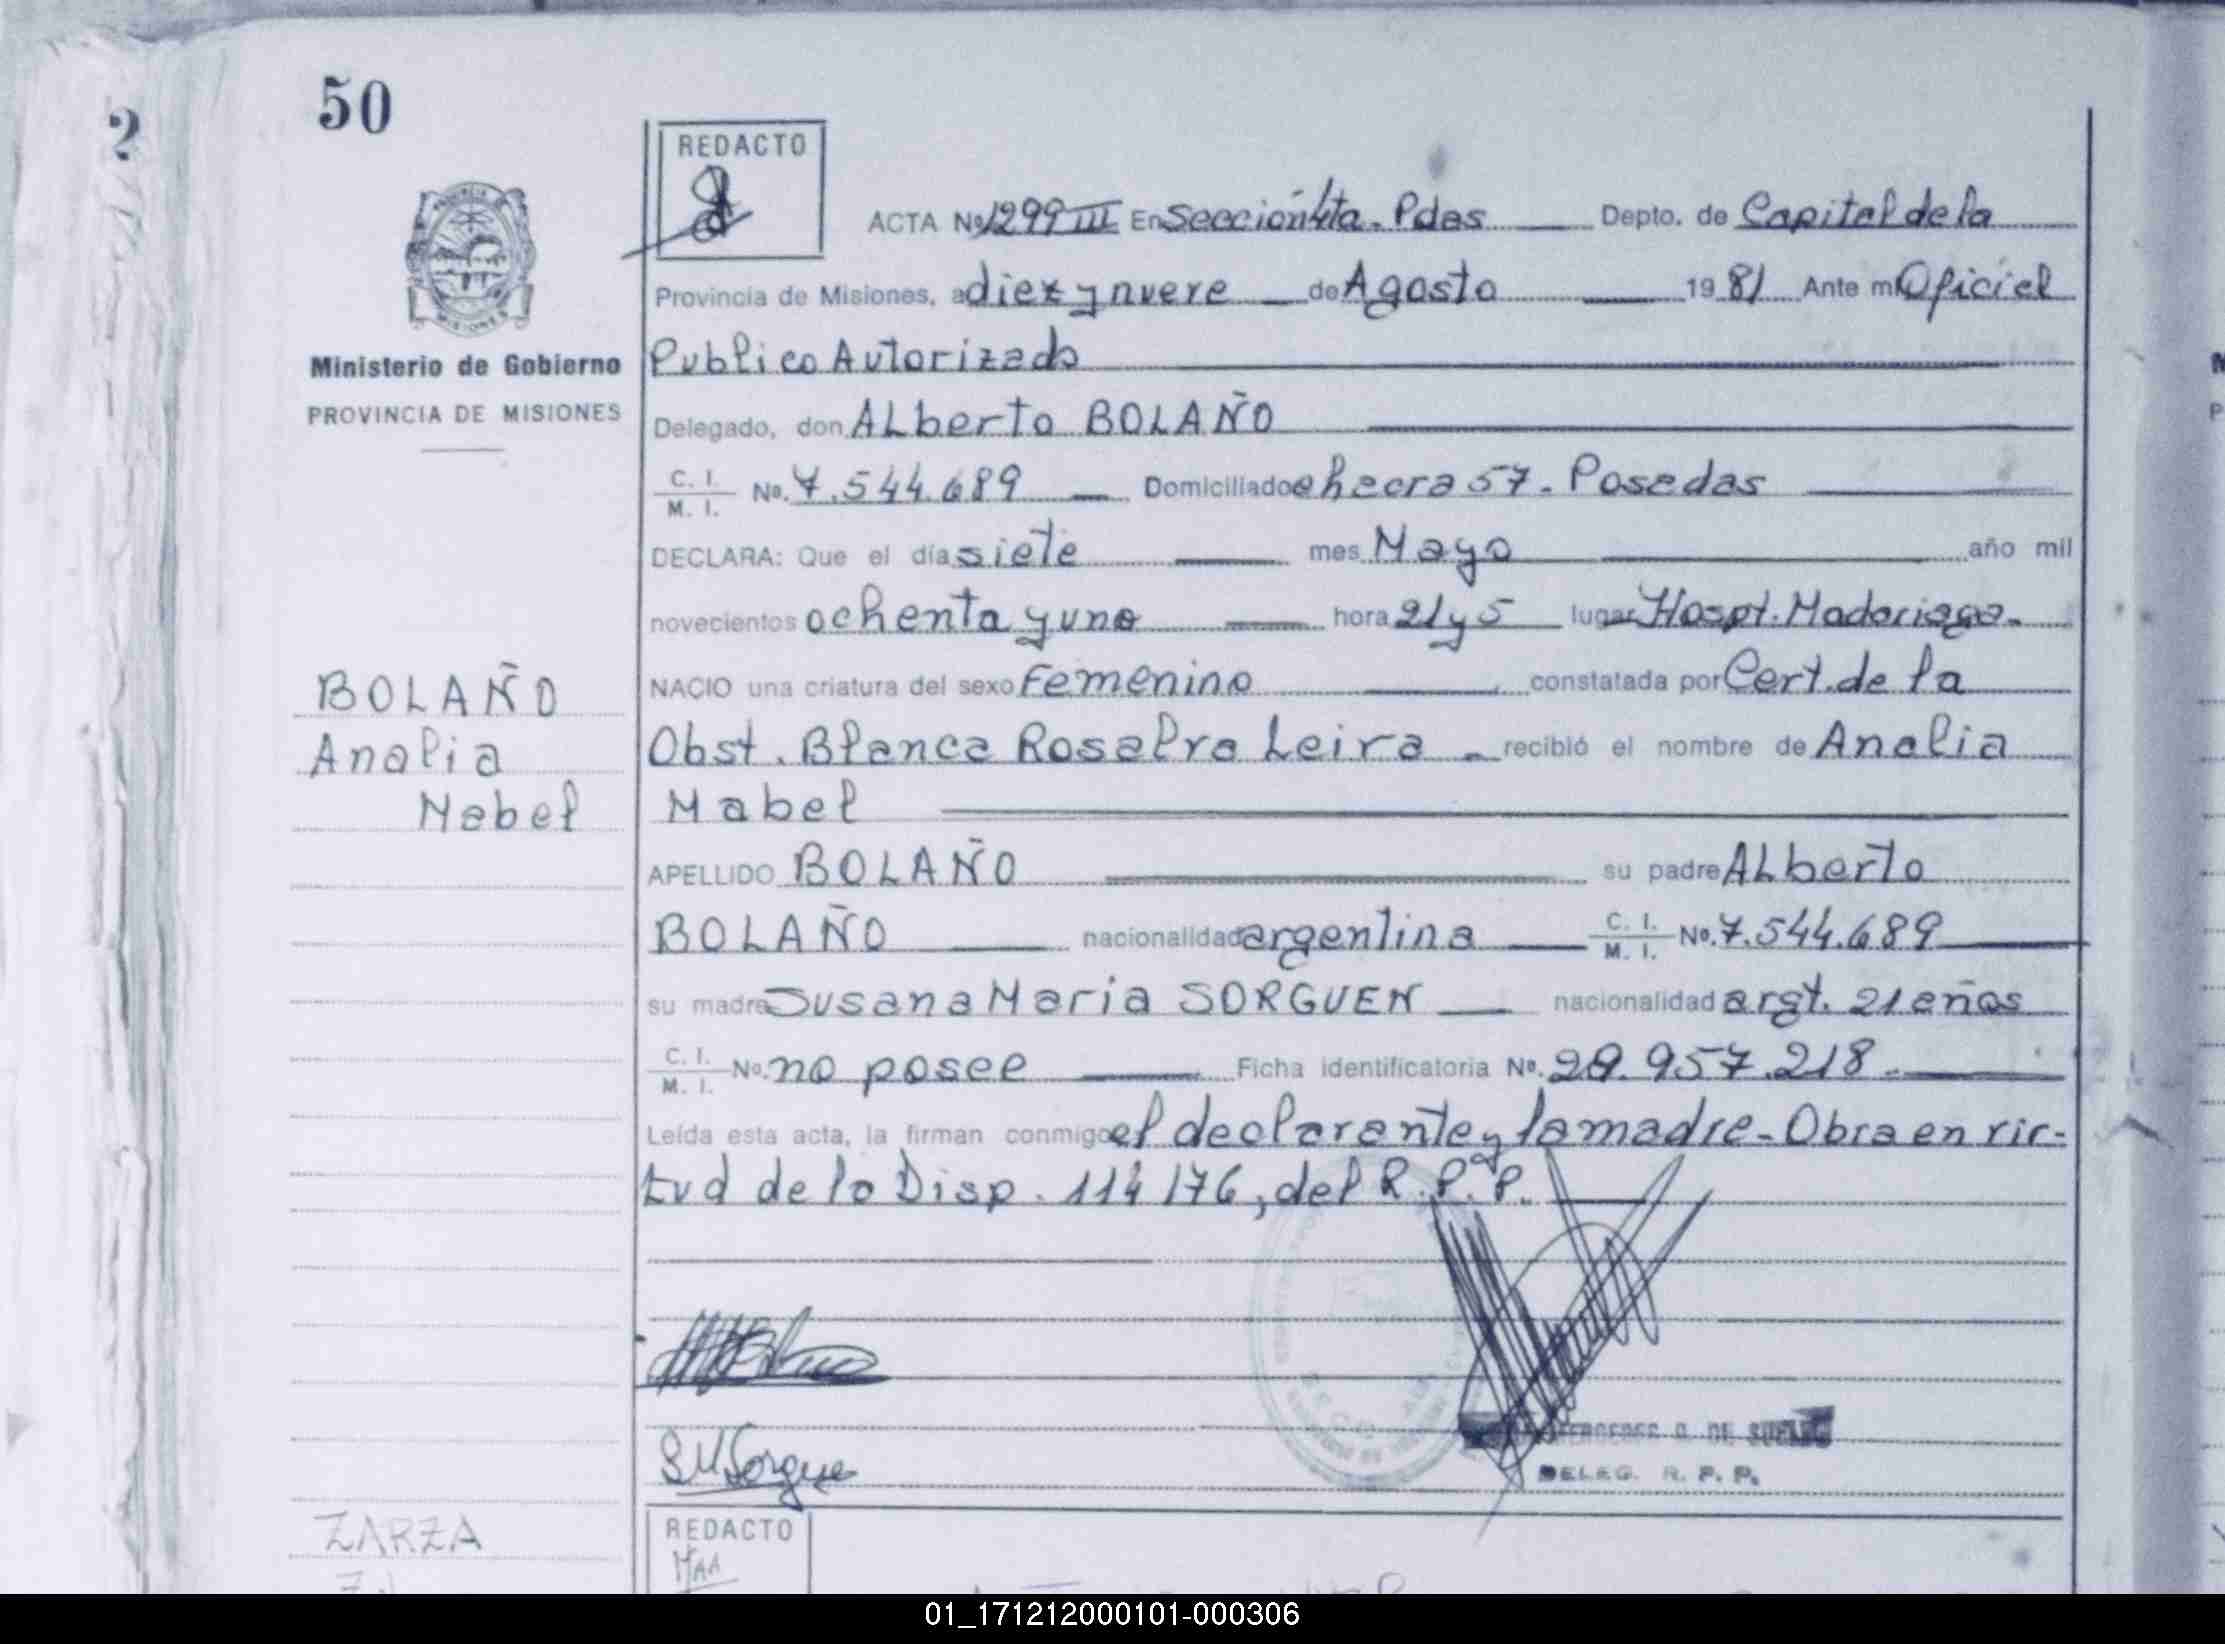 2
50
REDACTO
ACTA No. 1299 III En Sección 4ta. Pdas Depto. de Capital de la
Provincia de Misiones, a diez y nueve de Agosto 1981 Ante mi Oficial
Publico Autorizado
Ministerio de Gobierno
PROVINCIA DE MISIONES
Delegado, don ALberto BOLAÑO
C. I. / M. I. No. 7.544.689 Domiciliado chacra 57 - Posadas
DECLARA: Que el día siete mes Mayo año mil
novecientos ochenta y uno hora 21 y 5 lugar Hospt. Madariaga.
NACIO una criatura del sexo Femenino constatada por Cert. de la
Obst. Blanca Rosalra Leira - recibió el nombre de Analia
Mabel
BOLAÑO
Analia
Mabel
APELLIDO BOLAÑO su padre ALberto
BOLAÑO nacionalidad argentina C. I. / M. I. No. 7.544.689
su madre Susana Maria SORGUEN nacionalidad argt. 21 años
C. I. / M. I. No. no posee Ficha identificatoria No. 20.957.218.-
Leída esta acta, la firman conmigo el declarante y la madre - Obra en vir-
tud de la Disp. 114/76, del R. P. P.
S M Sorgue
DE
DELEG. R. P. P.
ZARZA
REDACTO
MAA
01_171212000101-000306